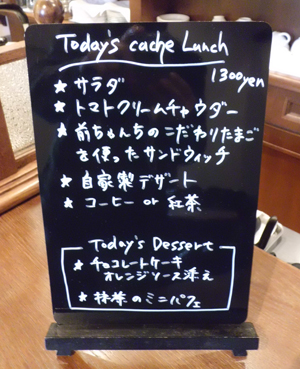 Today's cache Lunch
1300yen
★ サラダ
★ トマトクリームチャウダー
★ 前ちゃんちのこだわりたまご
を使ったサンドウィッチ
★ 自家製デザート
★ コーヒー or 紅茶
Today's Dessert
★ チョコレートケーキ
オレンジソース添え
★ 抹茶のミニパフェ